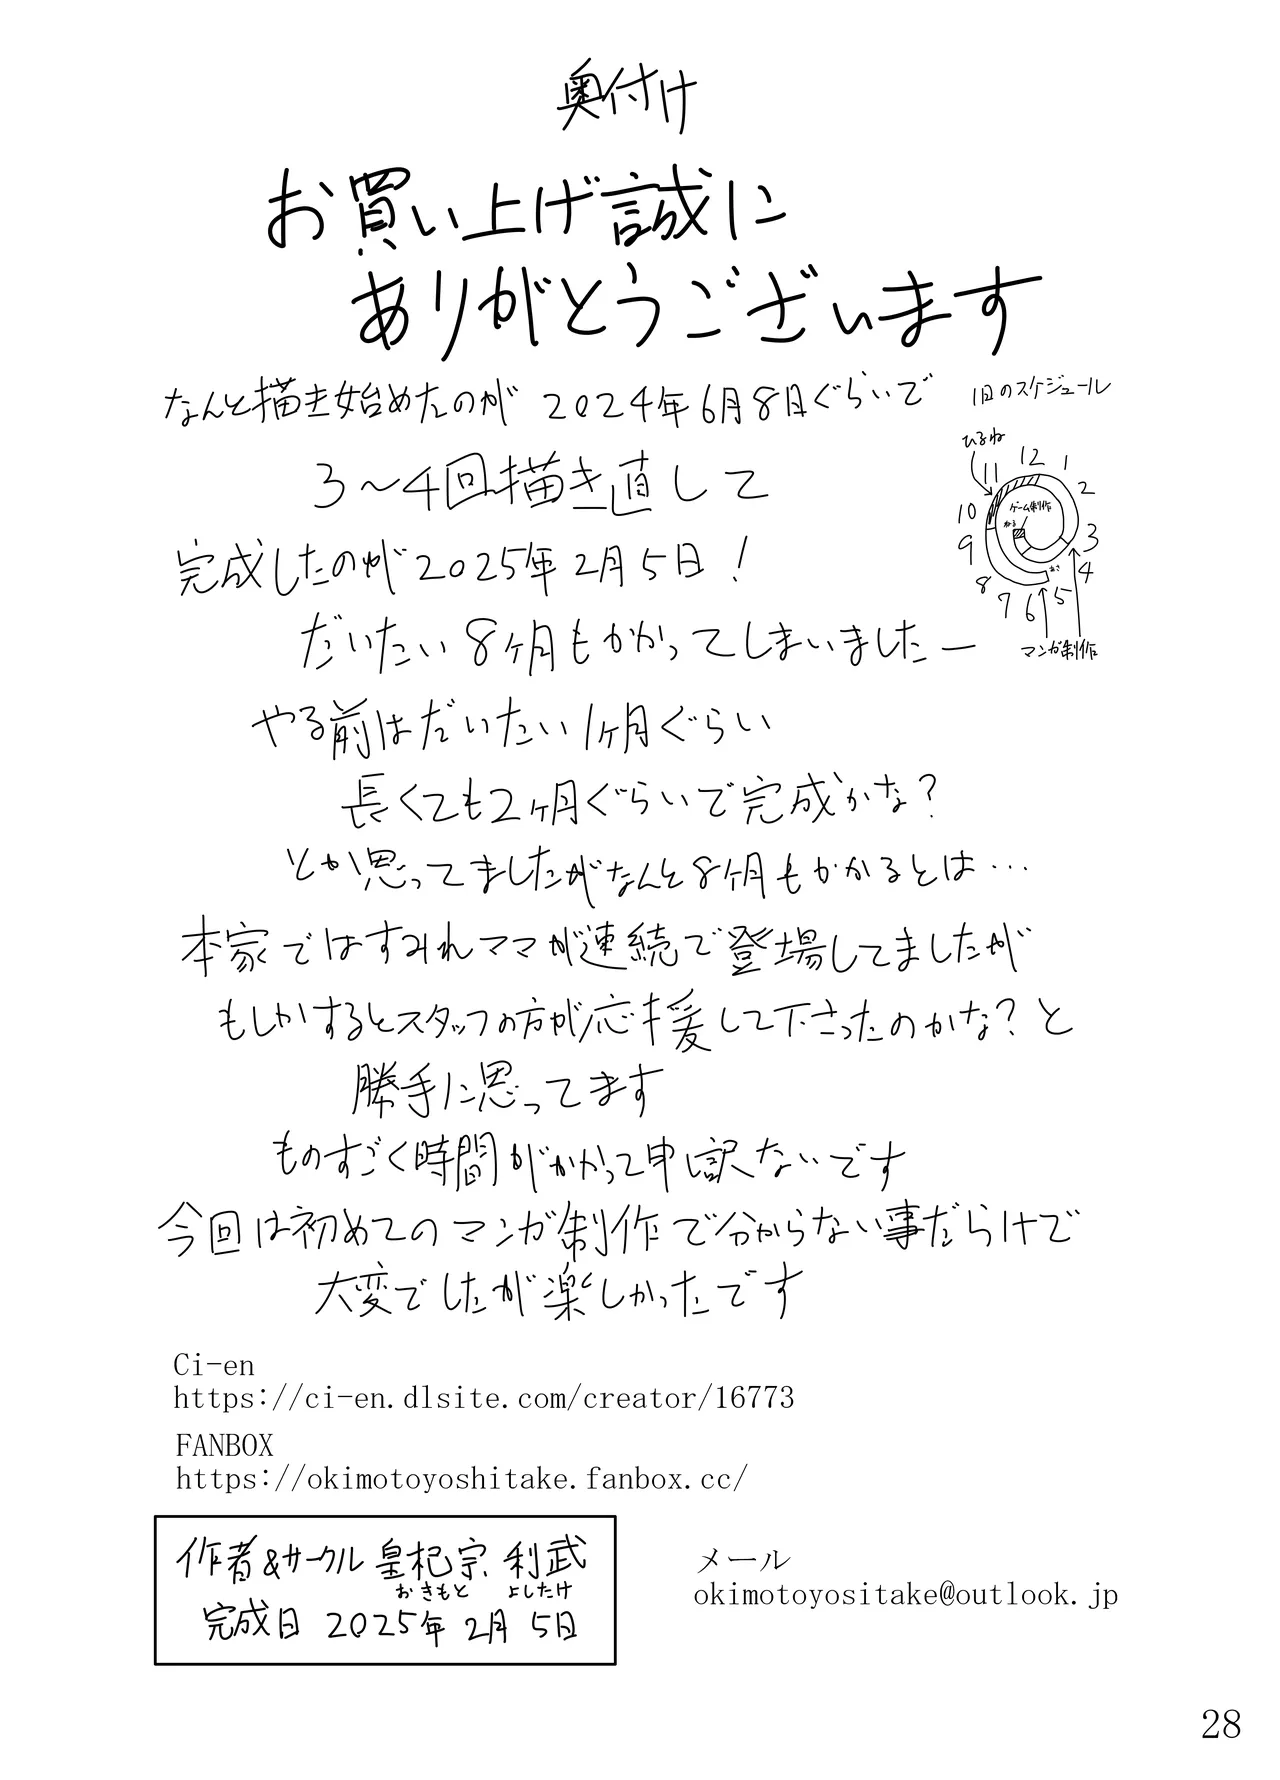 奥付け
お買い上げ誠に
ありがとうございます
なんと描き始めたのが 2024年6月8日ぐらいで
3～4回描き直して
完成したのが2025年2月5日!
だいたい8ヶ月もかかってしまいましたー
1日のスケジュール
ひるね
12
1
2
3
4
5
6
7
8
9
10
11
ゲーム制作
ねる
あさ
マンガ制作
やる前はだいたい1ヶ月ぐらい
長くても2ヶ月ぐらいで完成かな?
とか思ってましたがなんと8ヶ月もかかるとは…
本家ではすみれママが連続で登場してましたが
もしかするとスタッフの方が応援して下さったのかな?と
勝手に思ってます
ものすごく時間がかかって申し訳ないです
今回は初めてのマンガ制作で分からない事だらけで
大変でしたが楽しかったです
Ci-en
https://ci-en.dlsite.com/creator/16773
FANBOX
https://okimotoyoshitake.fanbox.cc/
作者&サークル 皇杞宗 利武
おきもと よしたけ
完成日 2025年2月5日
メール
okimotoyositake@outlook.jp
28